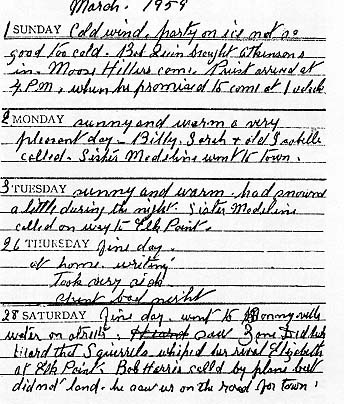 March. 1959
1 SUNDAY Cold wind. party on ice not so
good too cold. Bob Quin brought Atkinsons
in. Moose Hillers come. Priest arrived at
4 P.M. when he promised to come at 1 o'clock.
2 MONDAY sunny and warm a very
pleasant day - Billy, Sarah & old Isabelle
called. Sister Madeline went to town.
3 TUESDAY sunny and warm. had snowed
a little during the night. Sister Madeline
called on way to Elk Point.
26 THURSDAY fine day.
at home. writing
Took very sick
spent bad night
28 SATURDAY fine day. went to Bonnyville
water on streets. saw Zane
heard that Squirrels whiped her rival Elizabeth
at Elk Point. Bob Harris called by plane but
did not land. he saw us on the road for town.